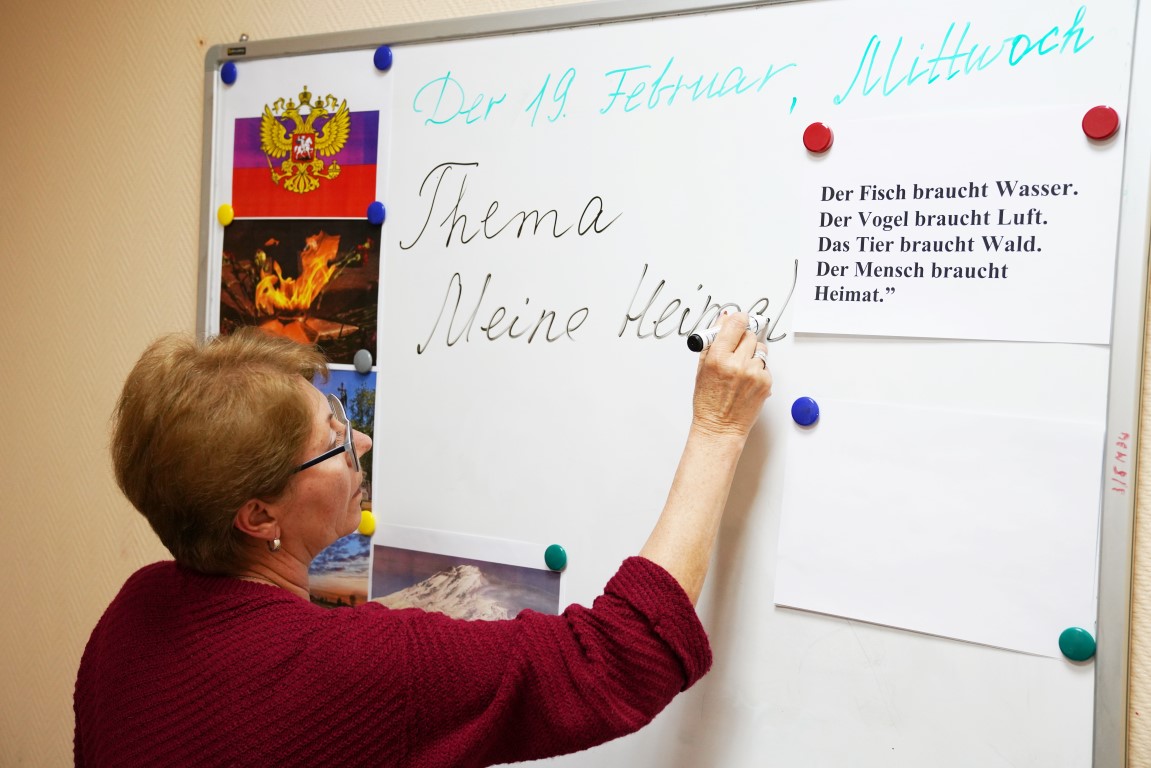 Der 19. Februar, Mittwoch
Thema
Meine Heimat
Der Fisch braucht Wasser.
Der Vogel braucht Luft.
Das Tier braucht Wald.
Der Mensch braucht
Heimat.”